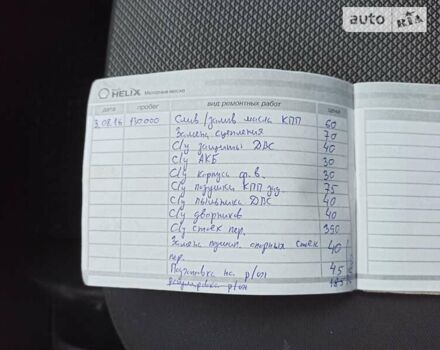 auto RIA
HELIX Моторные масла
дата пробег вид ремонтных работ цена
3.08.16 130.000 Слив/залив масла КПП 60
Замена сцепления 70
С/у защиты ДВС 40
С/у АКБ 30
С/у корпуса ф.в. 30
С/у подушки КПП зад. 75
С/у пыльника ДВС 40
С/у дворников 40
С/у стоек пер. 350
Замена подшип. опорных стоек 40
пер.
Подготовка на р/сх 45
р/сх 185